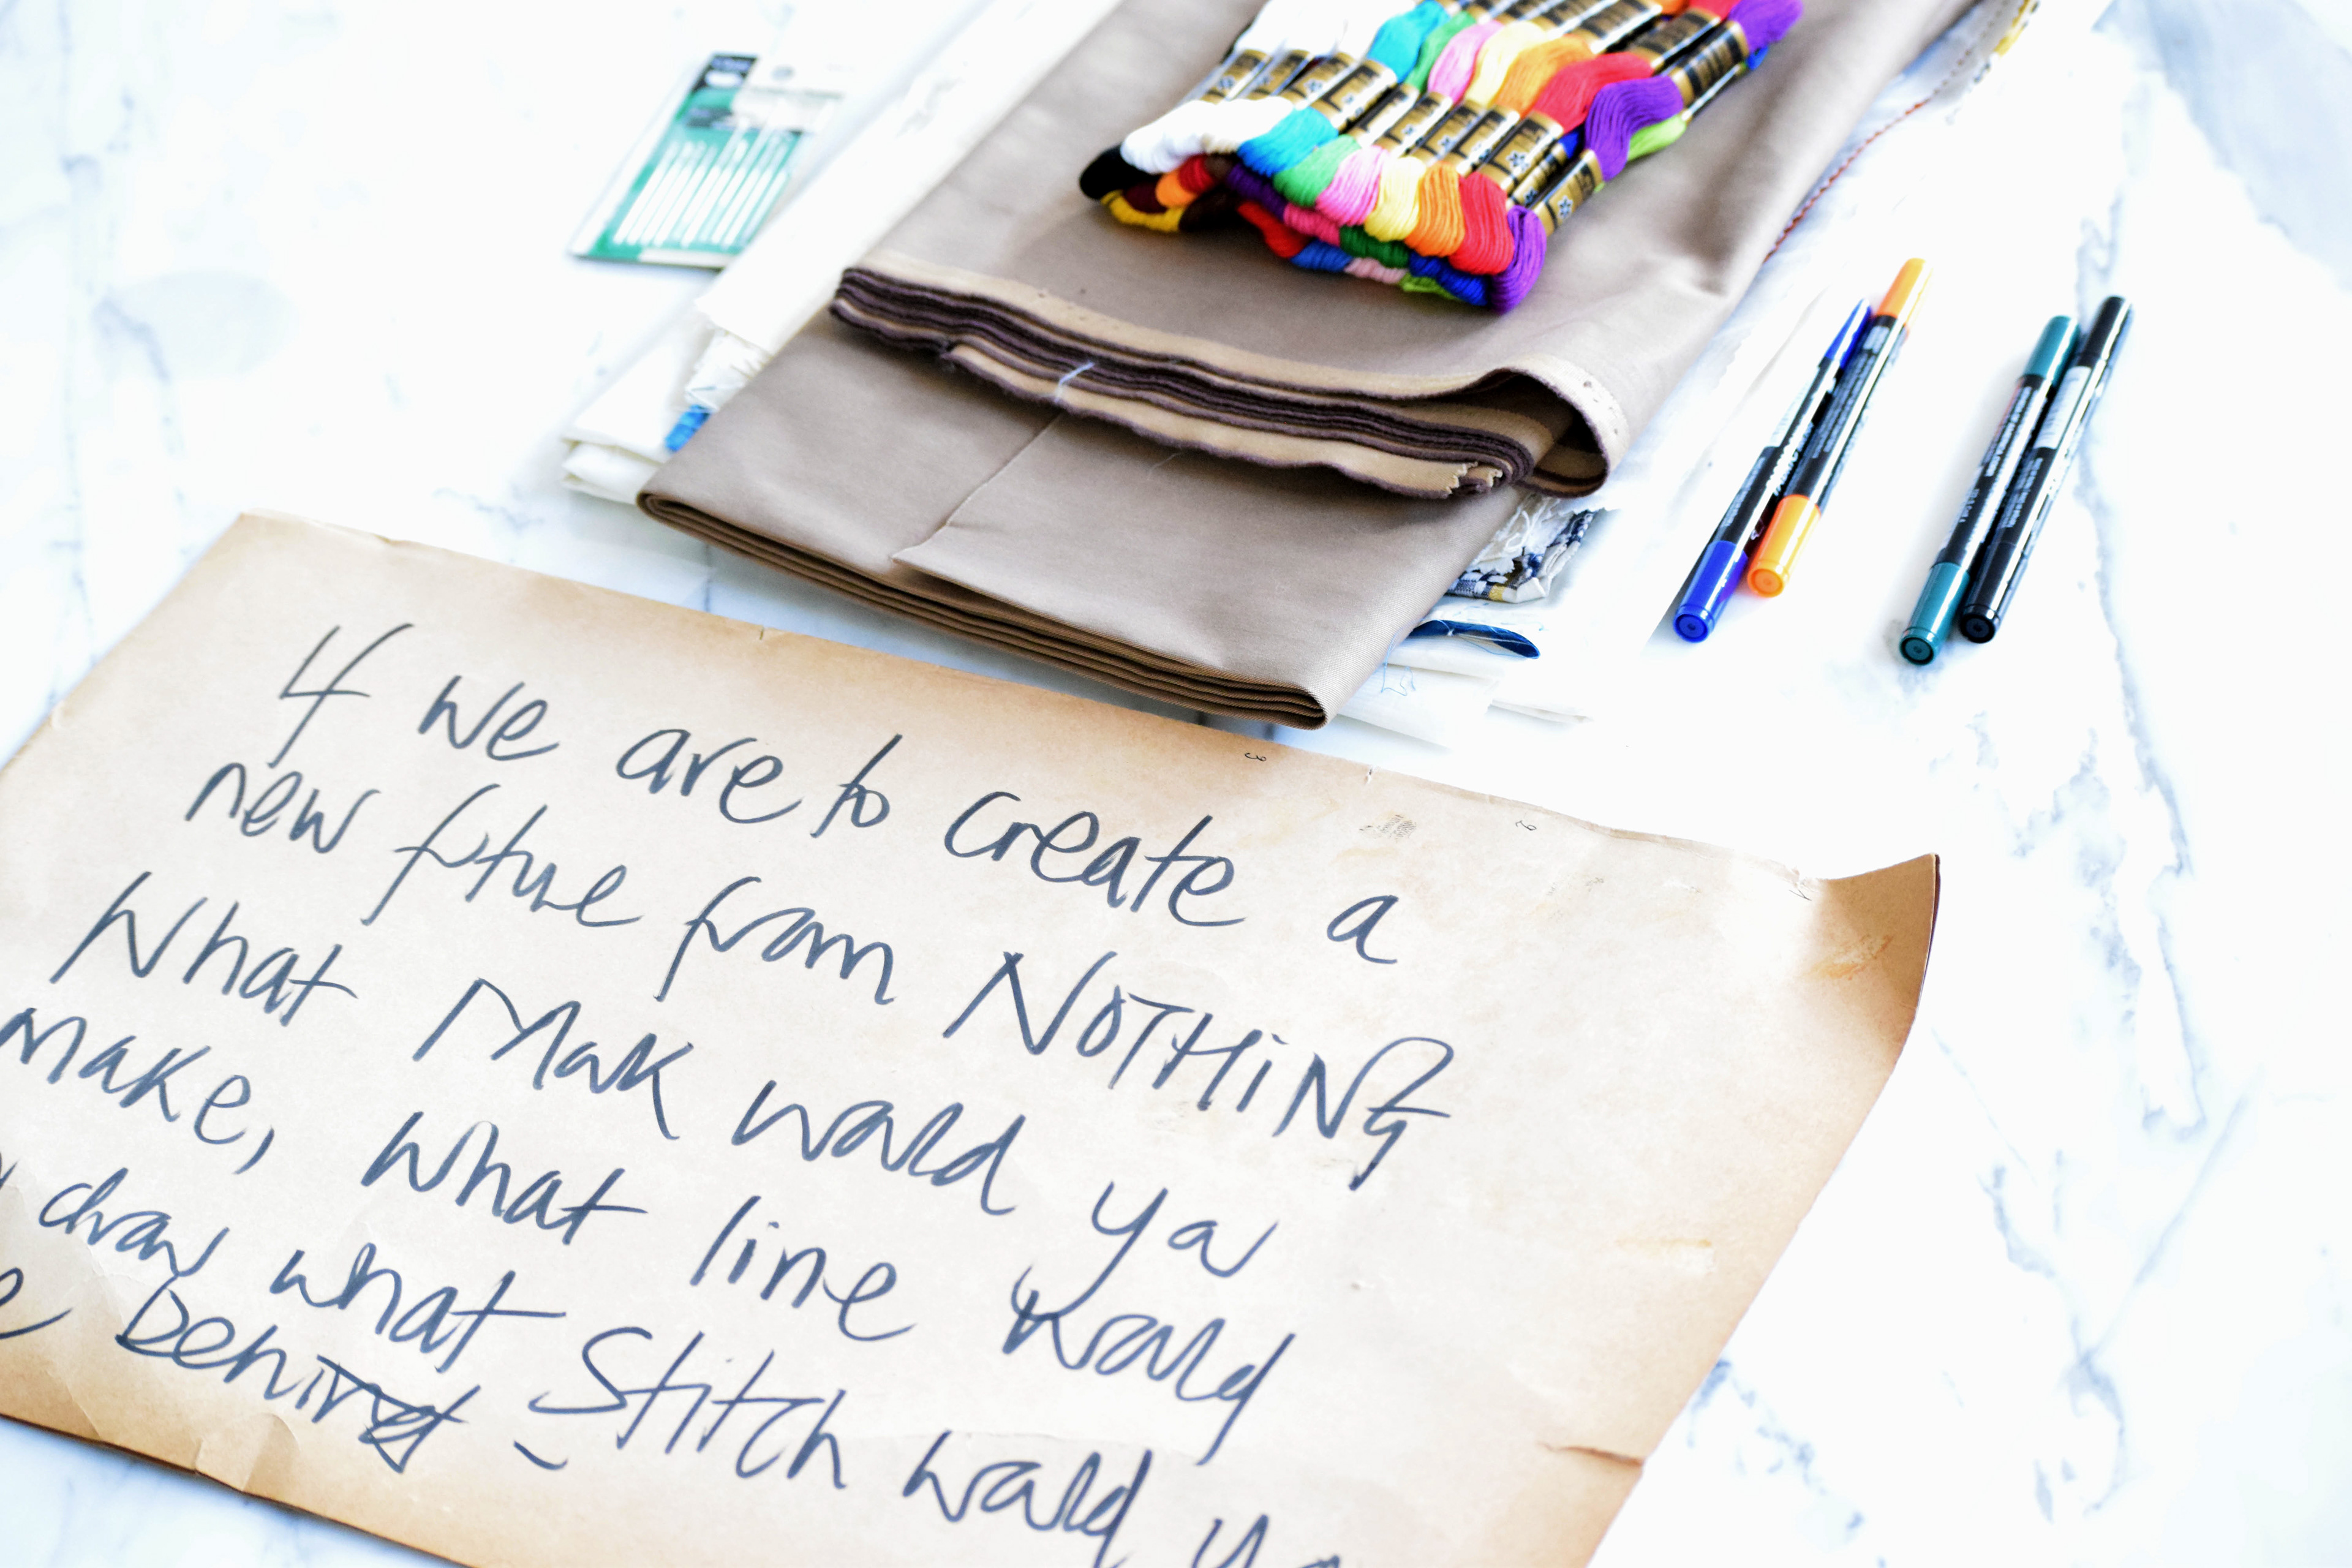 If we are to create a
new future from NOTHiNG
What Mark would you
make, what line would
draw what Stitch would
behind -